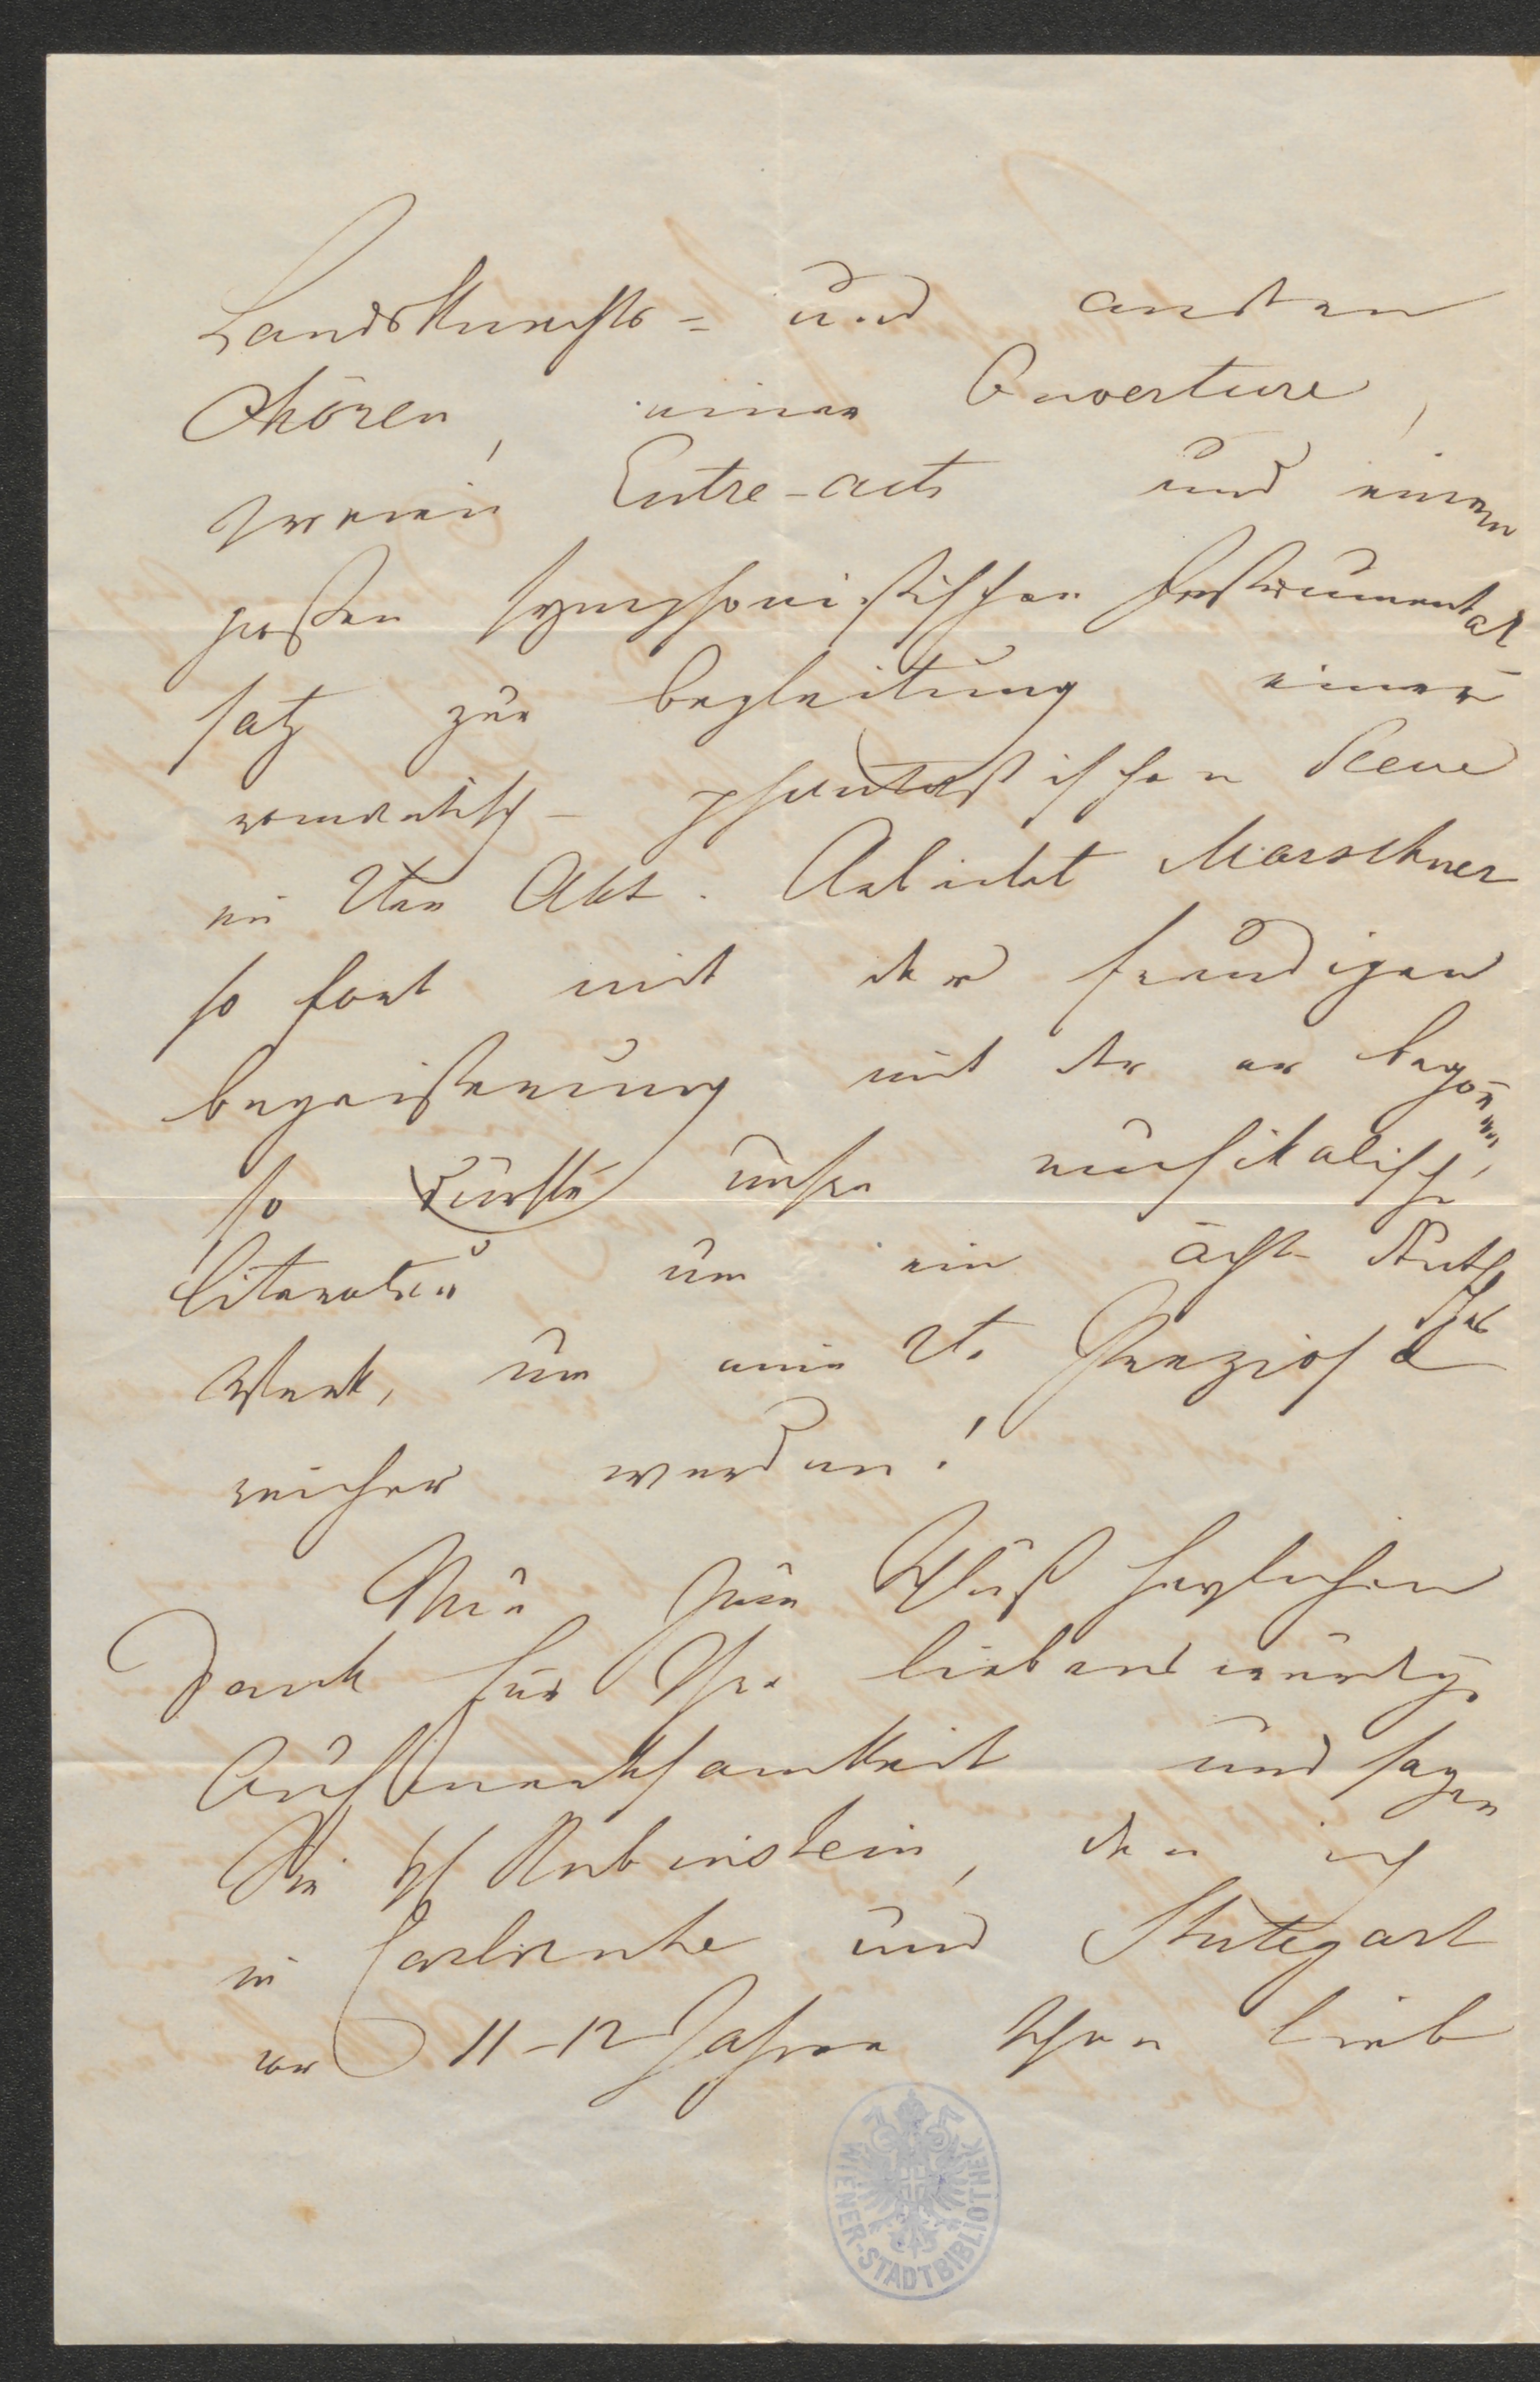 Landsknechts- und andern
Chören, einer Ouverture,
zweien Entre-acts und einem
großen symphonistischen Instrumental
satz zur Begleitung einer
romantisch-phantastischen Scene
im 2ten Akt. Arbeitet Marschner
so fort mit der freudigen
Begeisterung mit der er begonnen,
so dürfte unsre musikalische
Literatur um ein ächt deutsches
Werk, um eine 2te Preziosa
reicher werden!
Nun zum Schluß herzlichen
Dank für Ihre liebenswürdige
Aufmerksamkeit und sagen
Sie H Rubinstein, den ich
in Carlsruhe und Stuttgart
vor 11-12 Jahren schon lieb
WIENER-STADTBIBLIOTHEK